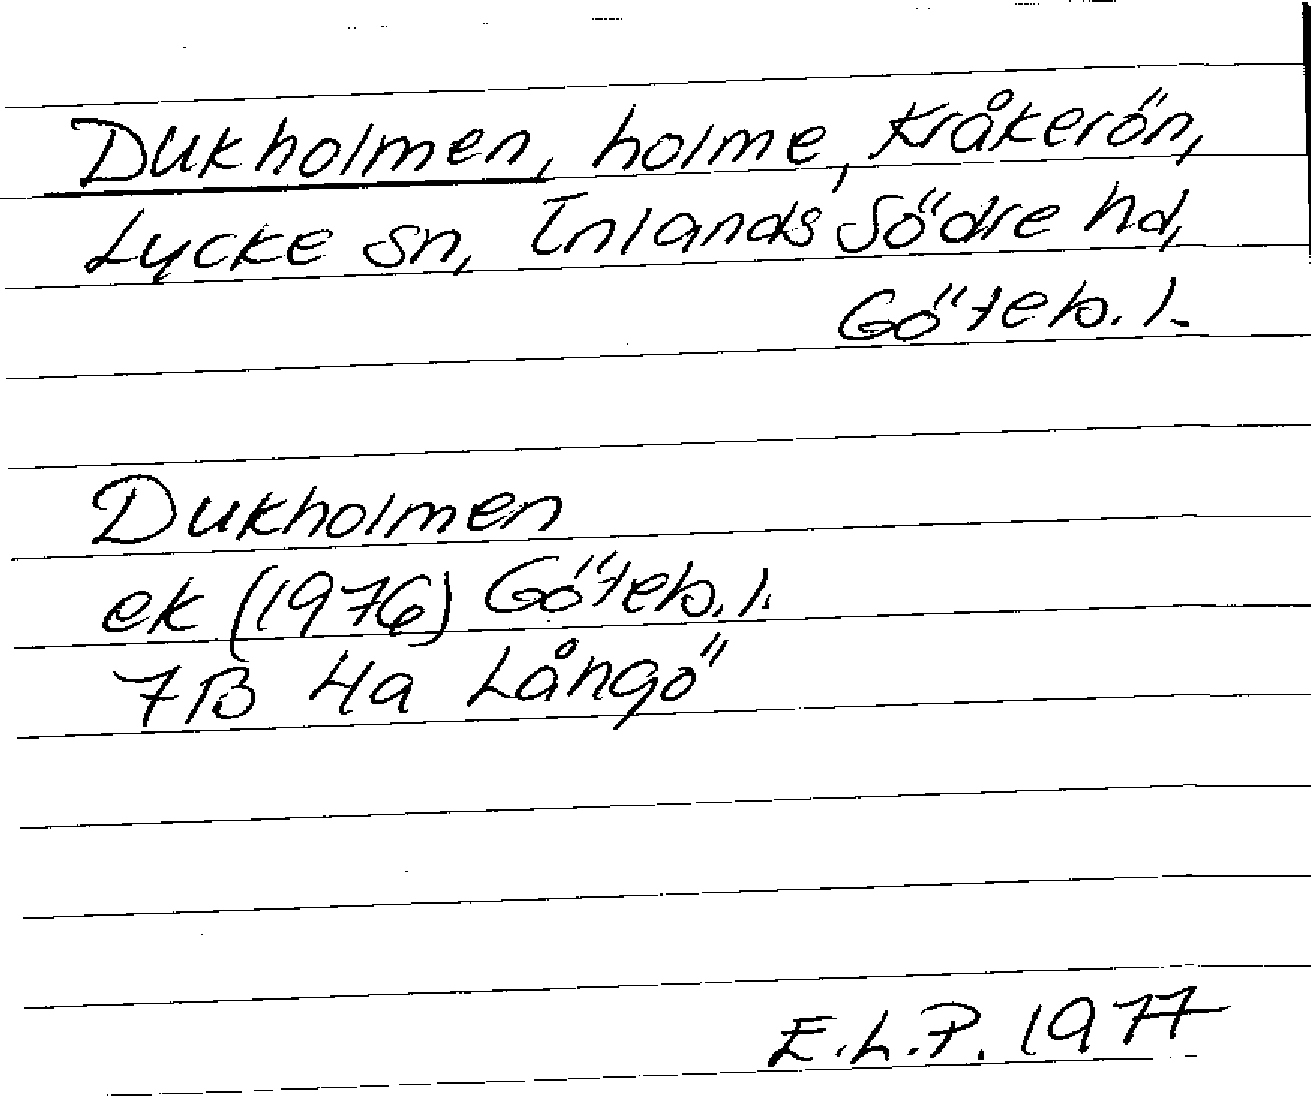 Dukholmen, holme, Kråkerön,
Lycke sn, Inlands Södre hd,
Göteb. l.
Dukholmen
ek (1976) Göteb. l.
7B 4a Långö
E.L.P. 1977